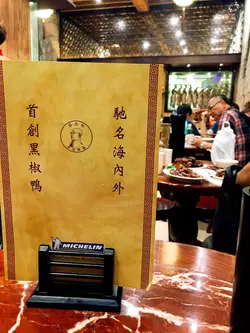 馳名海內外
首創黑椒鴨
MICHELIN